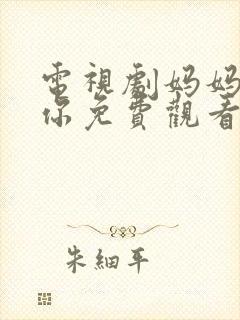 電視劇妈妈
你免費觀看
朱細平